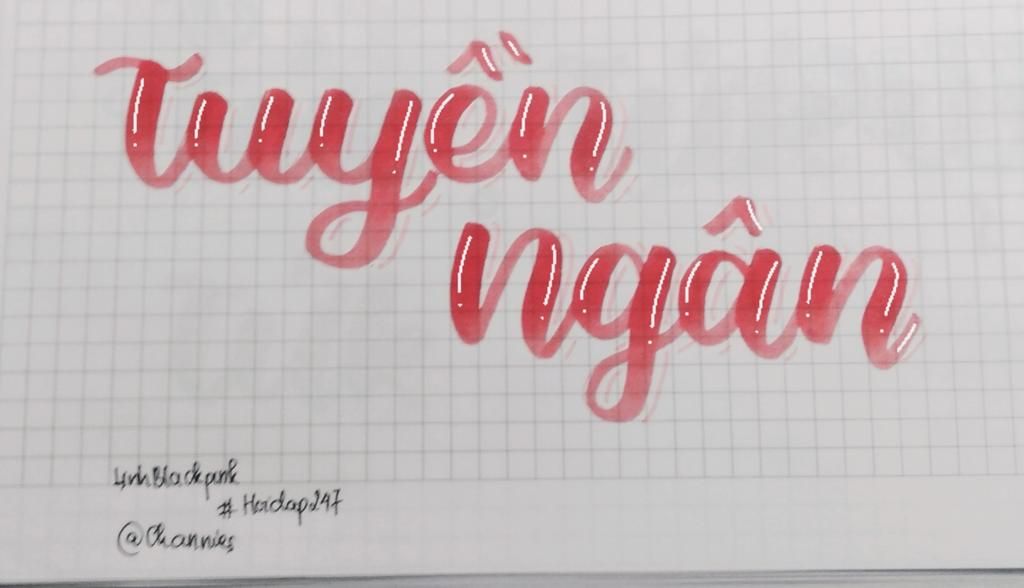 Tuyền
Ngân
LinhBlackpink
# Hoidap247
@Channies